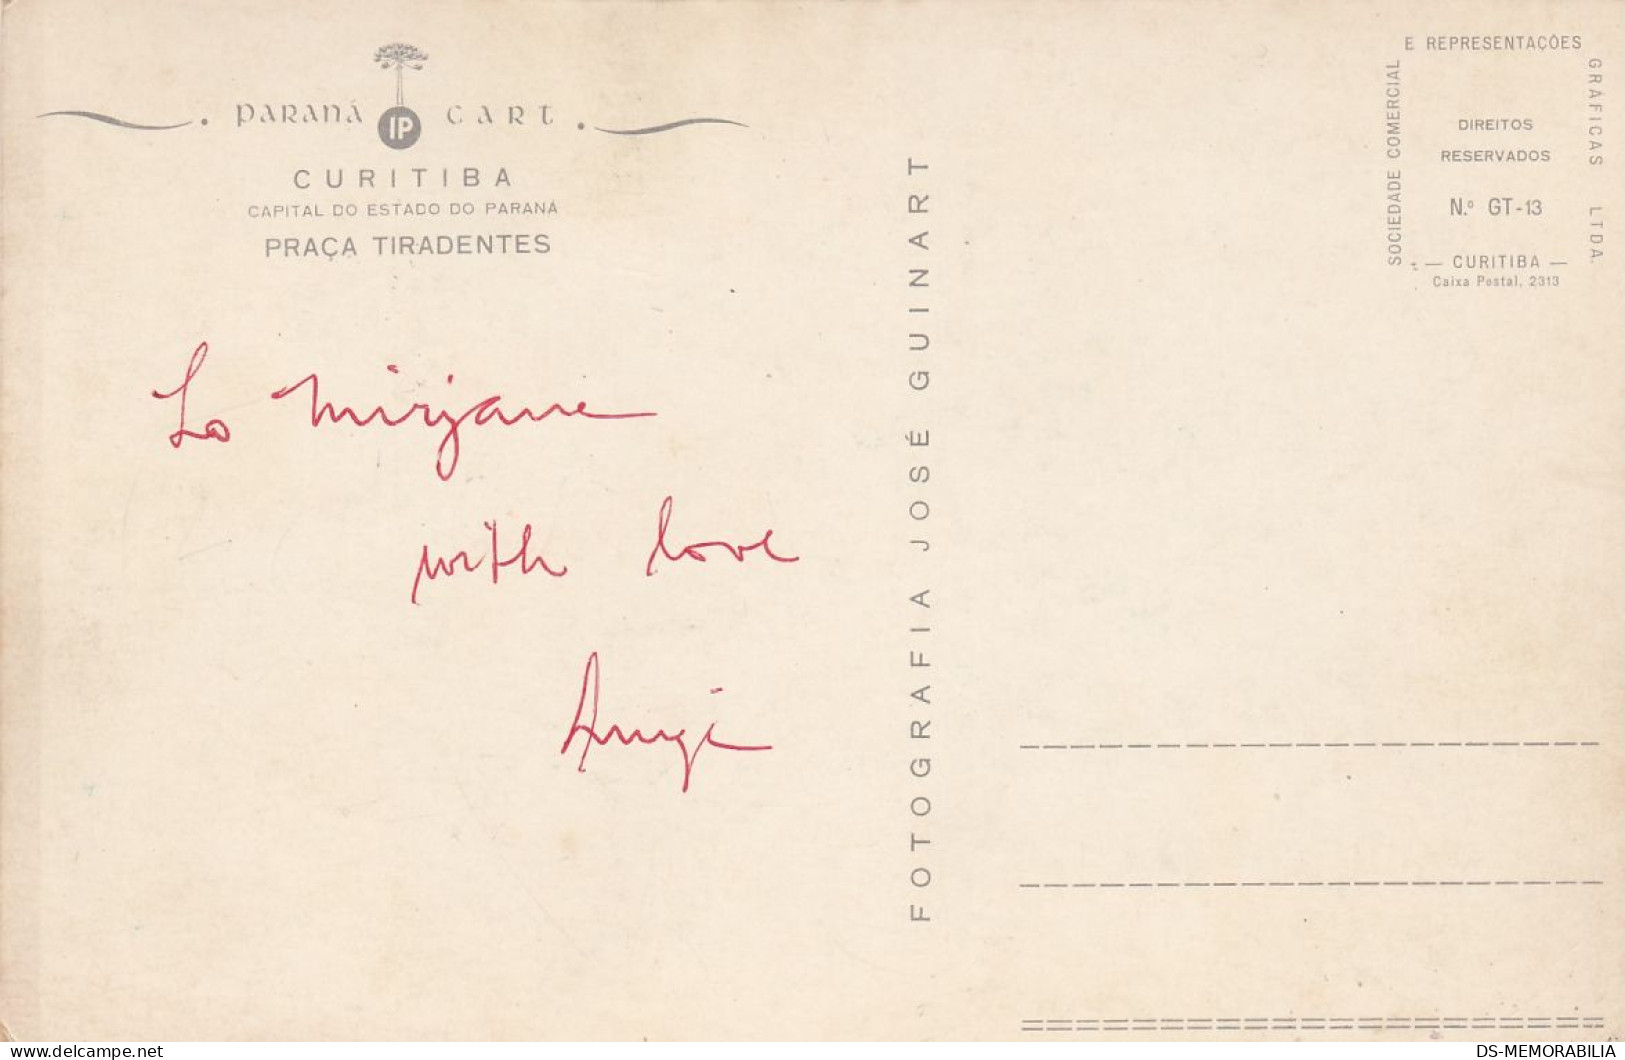 PARANÁ IP CART
CURITIBA
CAPITAL DO ESTADO DO PARANÁ
PRAÇA TIRADENTES
To Mirjane
with love
FOTOGRAFIA JOSÉ GUINART
SOCIEDADE COMERCIAL
E REPRESENTAÇÕES
GRÁFICAS LTDA.
DIREITOS
RESERVADOS
N.º GT-13
— CURITIBA —
Caixa Postal, 2313
DS-MEMORABILIA